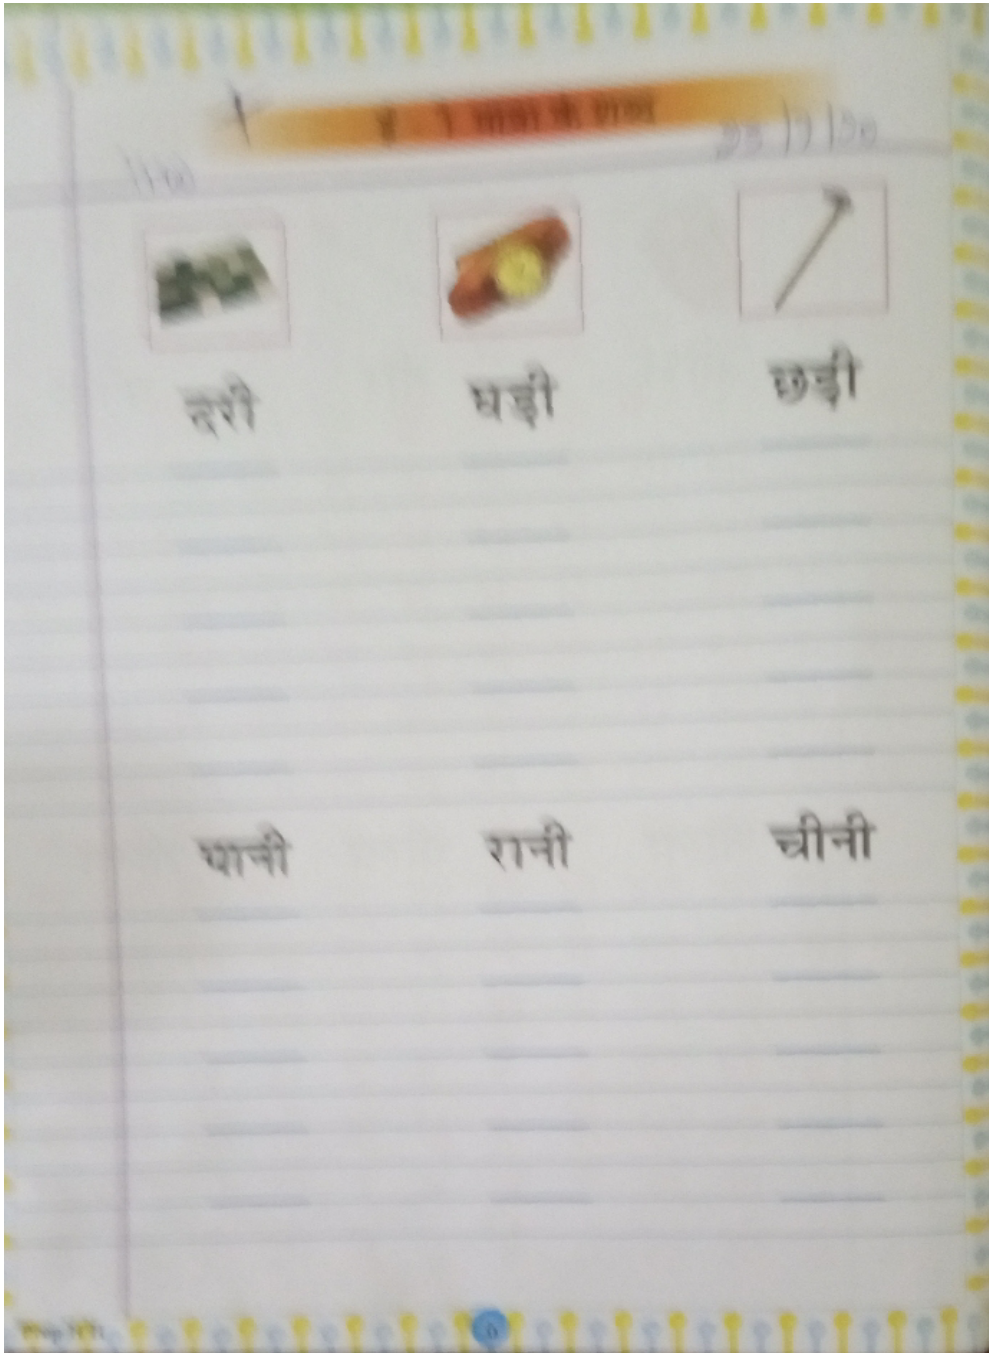 ई - ी मात्रा के शब्द
दरी घड़ी छड़ी
रानी चीनी
6